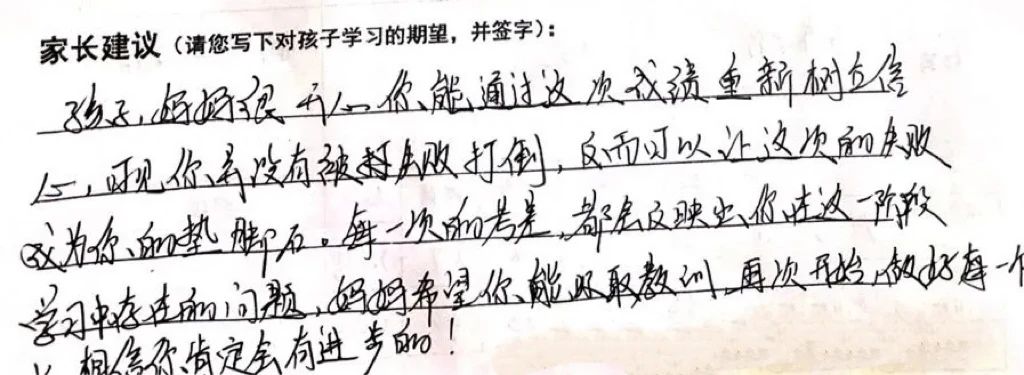 家长建议（请您写下对孩子学习的期望，并签字）：
孩子，妈妈很开心你能通过这次成绩重新树立信
心，可见你并没有被失败打倒，反而可以让这次的失败
成为你的垫脚石。每一次的考差，都会反映出你在这一阶段
学习中存在的问题，妈妈希望你能吸取教训，再次开始，做好每一个
相信你肯定会有进步的！